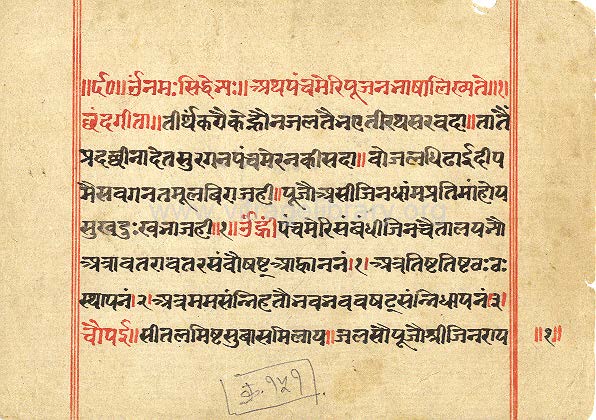 ॥र्द०॥ॐनमःसिद्धेभ्यः॥अथपंचमेरिपूजनभाषालिख्यते॥१
छंदगीता॥तीर्थंकरौकेन्हौनजलतैभएतीरथसरवदा॥तातैं
प्रदछीनादेतसुरगनपंचमेरनकीसदा॥दोजलधिढाईदीप
मैसवगनतमूलविराजही॥पूजौअसीजिनधांमप्रतिमांहोय
सुखदुःखभाजही॥१॥ॐह्रींपंचमेरिसंबंधीजिनचैतालयभौ
अत्रावतरावतरसंवौषट्आह्वाननं।१।अत्रतिष्टतिष्टठःठः
स्थापनं।२।अत्रममसंन्निहतौभवभववषट्संन्निधापनं।३।
चौपई॥सीतलमिष्टसुवासमिलाय॥जलसौपूजौश्रीजिनराय ॥१॥
क्र. १५१